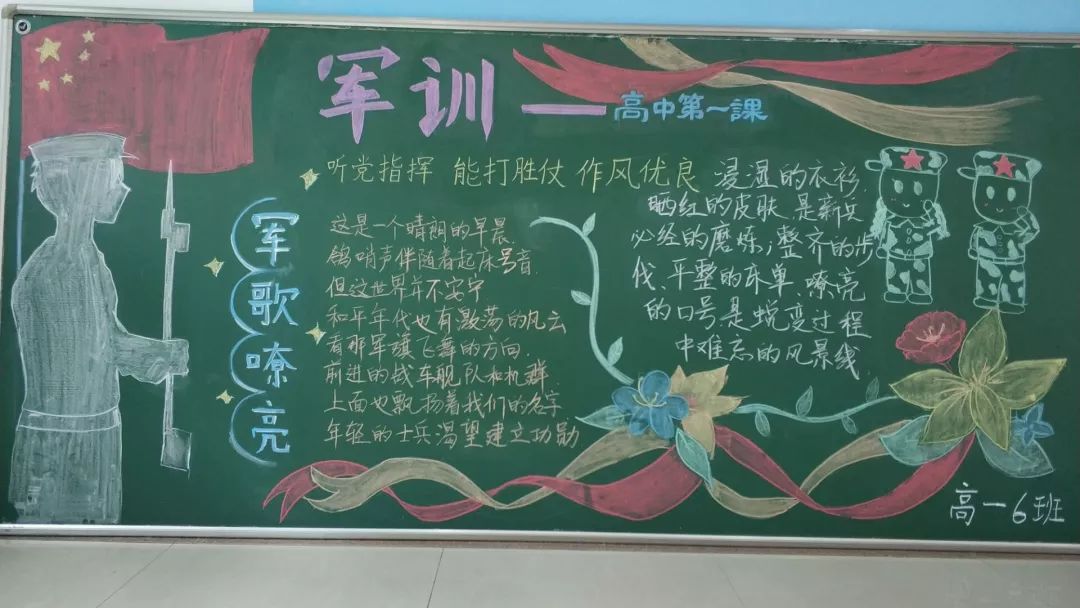 军训一
高中第一課
听党指挥 能打胜仗 作风优良
军歌嘹亮
这是一个晴朗的早晨
鸽哨声伴随着起床号音
但这世界并不安宁
和平年代也有激荡的风云
看那军旗飞舞的方向
前进的战车舰队和机群
上面也飘扬着我们的名字
年轻的士兵渴望建立功勋
浸湿的衣衫,
晒红的皮肤 是新兵
必经的磨炼;整齐的步
伐、平整的床单、嘹亮
的口号,是蜕变过程
中难忘的风景线
高一6班